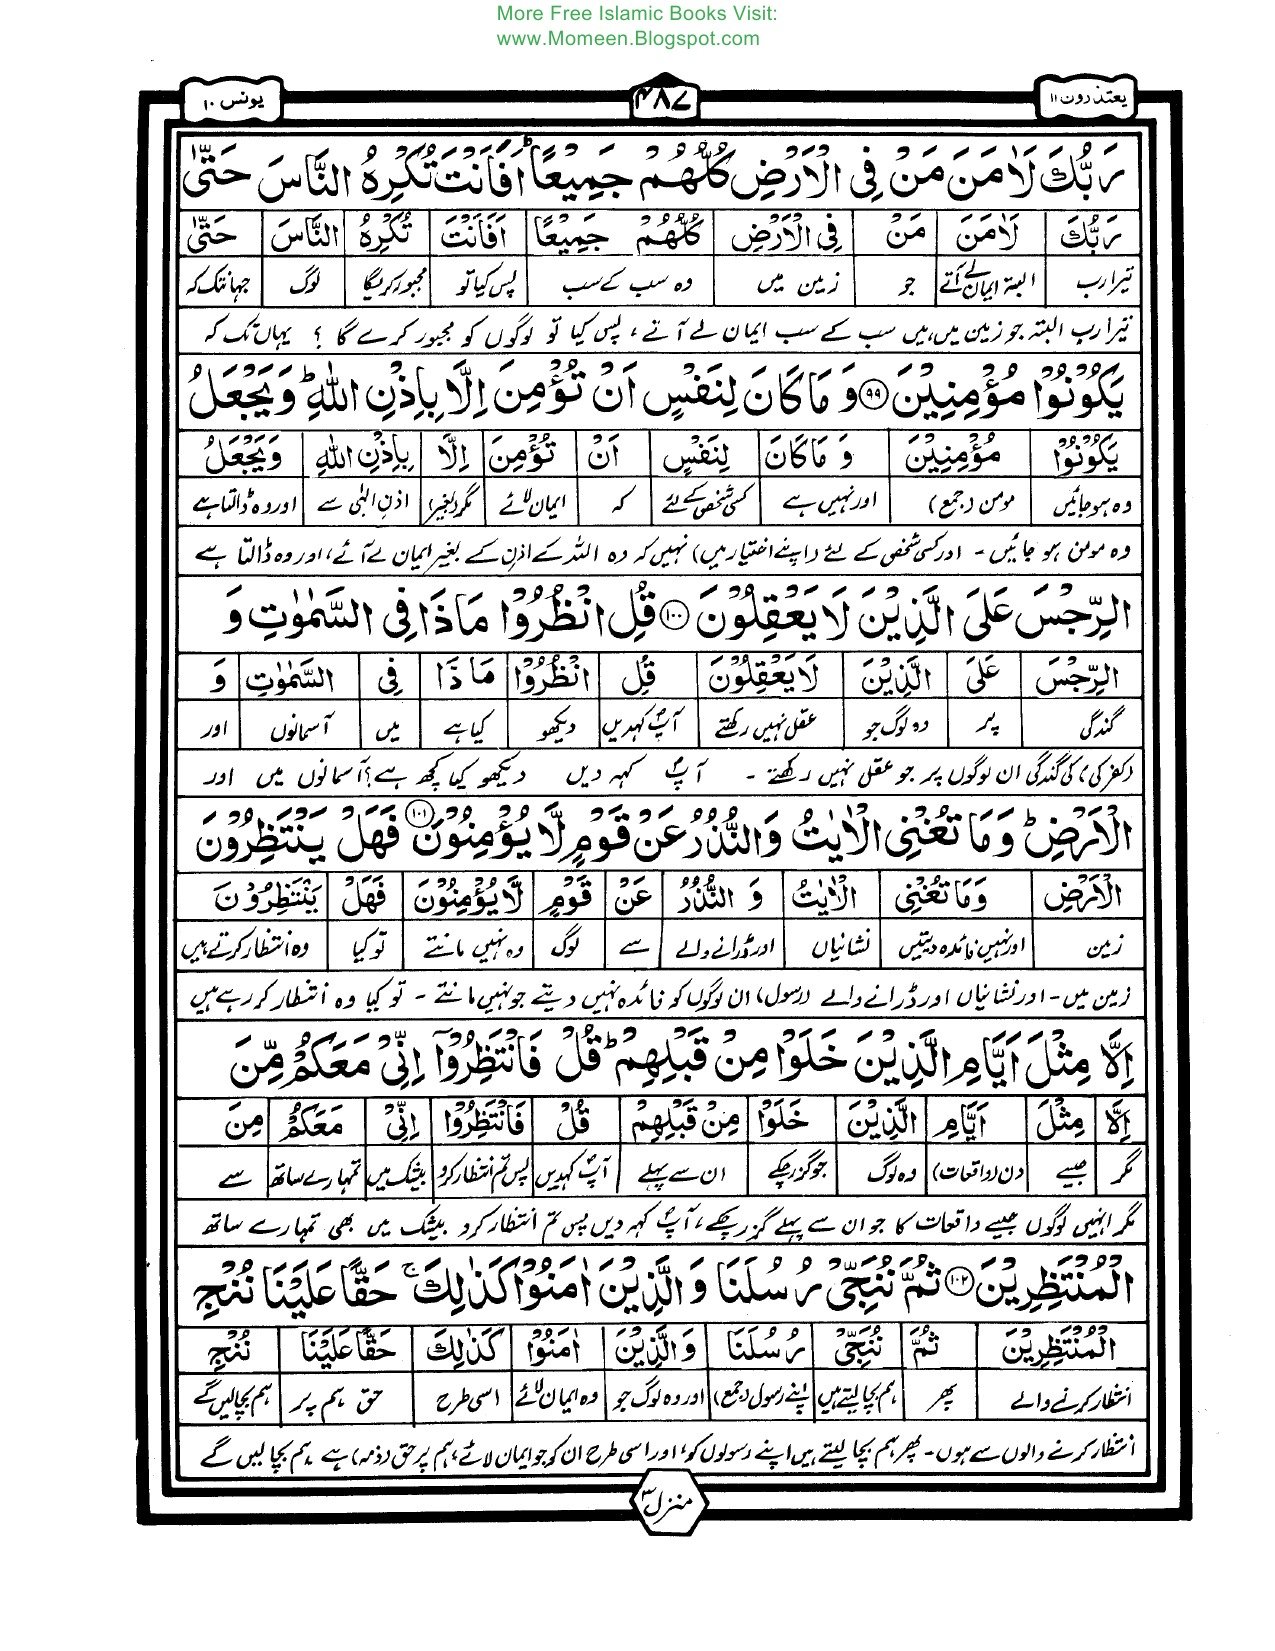 More Free Islamic Books Visit:
www.Momeen.Blogspot.com
یعتذرون ۱۱
۴۸۷
یونس ۱۰
رَبُّكَ لَاٰمَنَ مَنْ فِی الْاَرْضِ كُلُّهُمْ جَمِیْعًا ؕ اَفَاَنْتَ تُكْرِهُ النَّاسَ حَتّٰی
رَبُّكَ لَاٰمَنَ مَنْ فِی الْاَرْضِ كُلُّهُمْ جَمِیْعًا اَفَاَنْتَ تُكْرِهُ النَّاسَ حَتّٰی
تیرا رب البتہ ایمان لے آتے جو زمین میں وہ سب کے سب پس کیا تو مجبور کریگا لوگ یہانتک کہ
تیرا رب البتہ جو زمین میں ہیں سب کے سب ایمان لے آتے، پس کیا تو لوگوں کو مجبور کرے گا ؟ یہاں تک کہ
یَكُوْنُوْا مُؤْمِنِیْنَ ۹۹ وَ مَا كَانَ لِنَفْسٍ اَنْ تُؤْمِنَ اِلَّا بِاِذْنِ اللّٰهِ ؕ وَ یَجْعَلُ
یَكُوْنُوْا مُؤْمِنِیْنَ وَ مَا كَانَ لِنَفْسٍ اَنْ تُؤْمِنَ اِلَّا بِاِذْنِ اللّٰهِ وَ یَجْعَلُ
وہ ہو جائیں مومن (جمع) اور نہیں ہے کسی شخص کے لئے کہ ایمان لائے مگر (بغیر) اذنِ الٰہی سے اور وہ ڈالتا ہے
وہ مومن ہو جائیں - اور کسی شخص کے لئے (اپنے اختیار میں) نہیں کہ وہ اللہ کے اذن کے بغیر ایمان لے آئے، اور وہ ڈالتا ہے
الرِّجْسَ عَلَی الَّذِیْنَ لَا یَعْقِلُوْنَ ۱۰۰ قُلِ انْظُرُوْا مَا ذَا فِی السَّمٰوٰتِ وَ
الرِّجْسَ عَلَی الَّذِیْنَ لَا یَعْقِلُوْنَ قُلِ انْظُرُوْا مَا ذَا فِی السَّمٰوٰتِ وَ
گندگی پر وہ لوگ جو عقل نہیں رکھتے آپؐ کہدیں دیکھو کیا ہے میں آسمانوں اور
(کفر کی) گندگی ان لوگوں پر جو عقل نہیں رکھتے - آپؐ کہہ دیں دیکھو کیا کچھ ہے؟ آسمانوں میں اور
الْاَرْضِ ؕ وَ مَا تُغْنِی الْاٰیٰتُ وَ النُّذُرُ عَنْ قَوْمٍ لَّا یُؤْمِنُوْنَ ۱۰۱ فَهَلْ یَنْتَظِرُوْنَ
الْاَرْضِ وَ مَا تُغْنِی الْاٰیٰتُ وَ النُّذُرُ عَنْ قَوْمٍ لَّا یُؤْمِنُوْنَ فَهَلْ یَنْتَظِرُوْنَ
زمین اور نہیں فائدہ دیتیں نشانیاں اور ڈرانے والے سے لوگ وہ نہیں مانتے تو کیا وہ انتظار کرتے ہیں
زمین میں - اور نشانیاں اور ڈرانے والے (رسول) ان لوگوں کو فائدہ نہیں دیتے جو نہیں مانتے - تو کیا وہ انتظار کر رہے ہیں
اِلَّا مِثْلَ اَیَّامِ الَّذِیْنَ خَلَوْا مِنْ قَبْلِهِمْ ؕ قُلْ فَانْتَظِرُوْۤا اِنِّیْ مَعَكُمْ مِّنَ
اِلَّا مِثْلَ اَیَّامِ الَّذِیْنَ خَلَوْا مِنْ قَبْلِهِمْ قُلْ فَانْتَظِرُوْا اِنِّیْ مَعَكُمْ مِنَ
مگر جیسے دن (واقعات) وہ لوگ جو گزر چکے ان سے پہلے آپؐ کہدیں پس تم انتظار کرو بیشک میں تمہارے ساتھ سے
مگر انہیں لوگوں جیسے واقعات کا جو ان سے پہلے گزر چکے، آپؐ کہہ دیں پس تم انتظار کرو بیشک میں بھی تمہارے ساتھ
الْمُنْتَظِرِیْنَ ۱۰۲ ثُمَّ نُنَجِّیْ رُسُلَنَا وَ الَّذِیْنَ اٰمَنُوْا كَذٰلِكَ ۚ حَقًّا عَلَیْنَا نُنْجِ
الْمُنْتَظِرِیْنَ ثُمَّ نُنَجِّیْ رُسُلَنَا وَ الَّذِیْنَ اٰمَنُوْا كَذٰلِكَ حَقًّا عَلَیْنَا نُنْجِ
انتظار کرنے والے پھر ہم بچا لیتے ہیں اپنے رسول (جمع) اور وہ لوگ جو وہ ایمان لائے اسی طرح حق ہم پر ہم بچالیں گے
انتظار کرنے والوں سے ہوں - پھر ہم بچا لیتے ہیں اپنے رسولوں کو، اور اسی طرح ان کو جو ایمان لائے، ہم پر حق (ذمہ) ہے ہم بچا لیں گے
منزل ۳